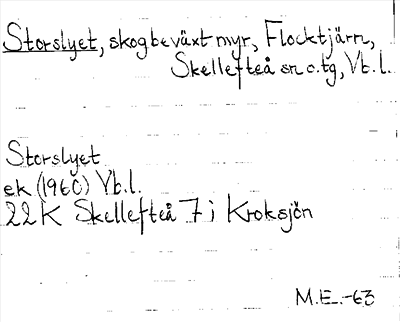 Storslyet, skogbeväxt myr, Flocktjärn,
Skellefteå sn o. tg, Vb.l.
Storslyet
ek (1960) Vb.l.
22K Skellefteå 7 i Kroksjön
M.E.-63